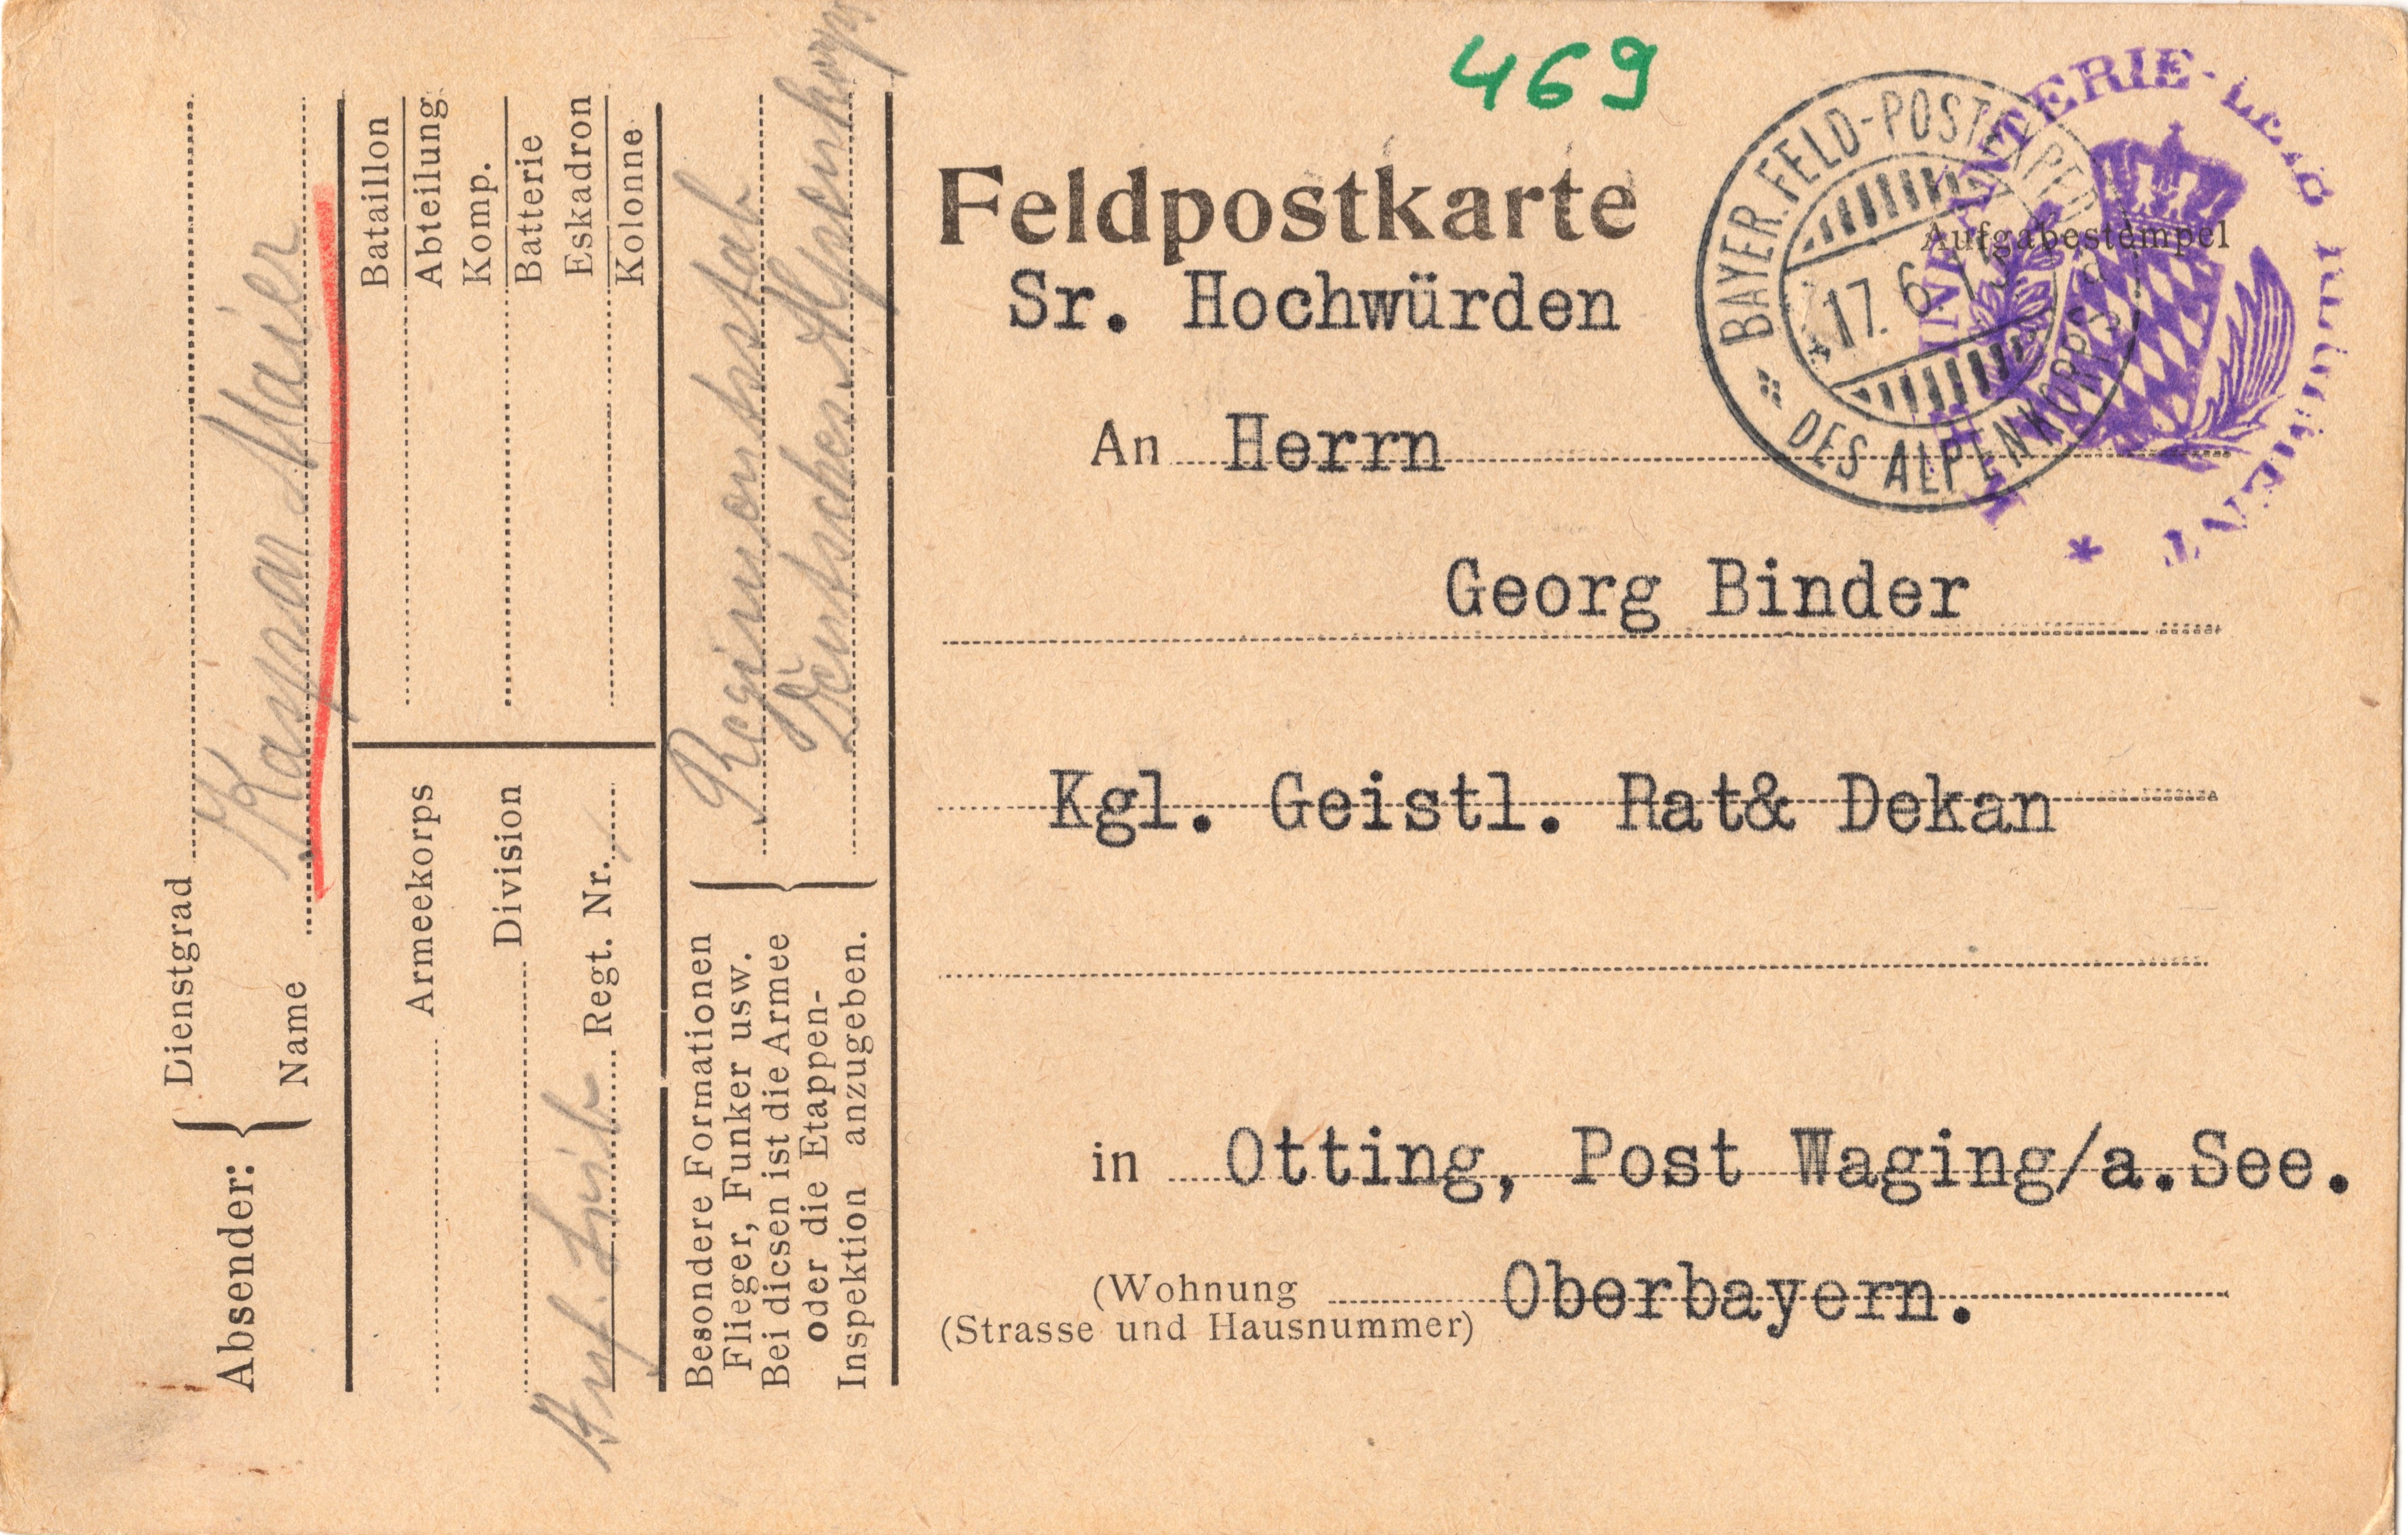 469
Feldpostkarte
Aufgabestempel
BAYER. FELD-POSTEXPED.
17. 6.
DES ALPENKORPS
K. B. INFANTERIE-LEIB REGIMENT *
Sr. Hochwürden
An Herrn
Georg Binder
Kgl. Geistl. Rat& Dekan
in Otting, Post Waging/a.See.
(Wohnung Oberbayern.
(Strasse und Hausnummer)
Absender:
Dienstgrad
Name Kaspar Maier
Bataillon
Abteilung
Komp.
Batterie
Eskadron
Kolonne
Armeekorps
Division
Inf. Leib Regt. Nr.
Besondere Formationen
Flieger, Funker usw.
Bei diesen ist die Armee
oder die Etappen-
Inspektion anzugeben.
Regimentsstab
Deutsches Alpenkorps